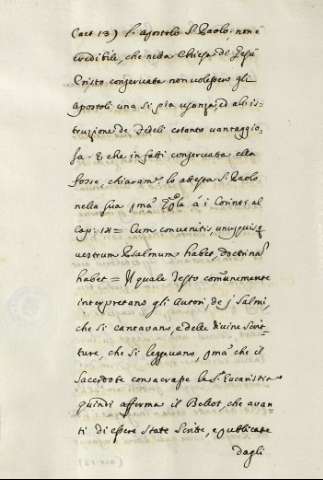 (act. 13) l'Apostolo S. Paolo: non è
credibile, che nella Chiesa di Gesù
Cristo conservata non volessero gli
Apostoli una sì pia usanza, ed all'is-
truzione de Fedeli cotanto vantaggio-
sa. E che in fatti conservata ella
fosse, chiaram. lo attesta S. Paolo
nella sua pma Epla à i Corinti al
Cap: 14 = Cum convenitis, unusquisq
vestrum Psalmum habet, doctrinam
habet = Il quale testo comunemente
interpretano gli Autori, de i Salmi,
che si cantavano, e delle divine Scrit-
ture, che si leggevano, pma che il
Sacerdote consacrasse la S. Eucaristia
quindi afferma il Bellot, che avan-
ti di essere state scritte, e pubblicate
dagli